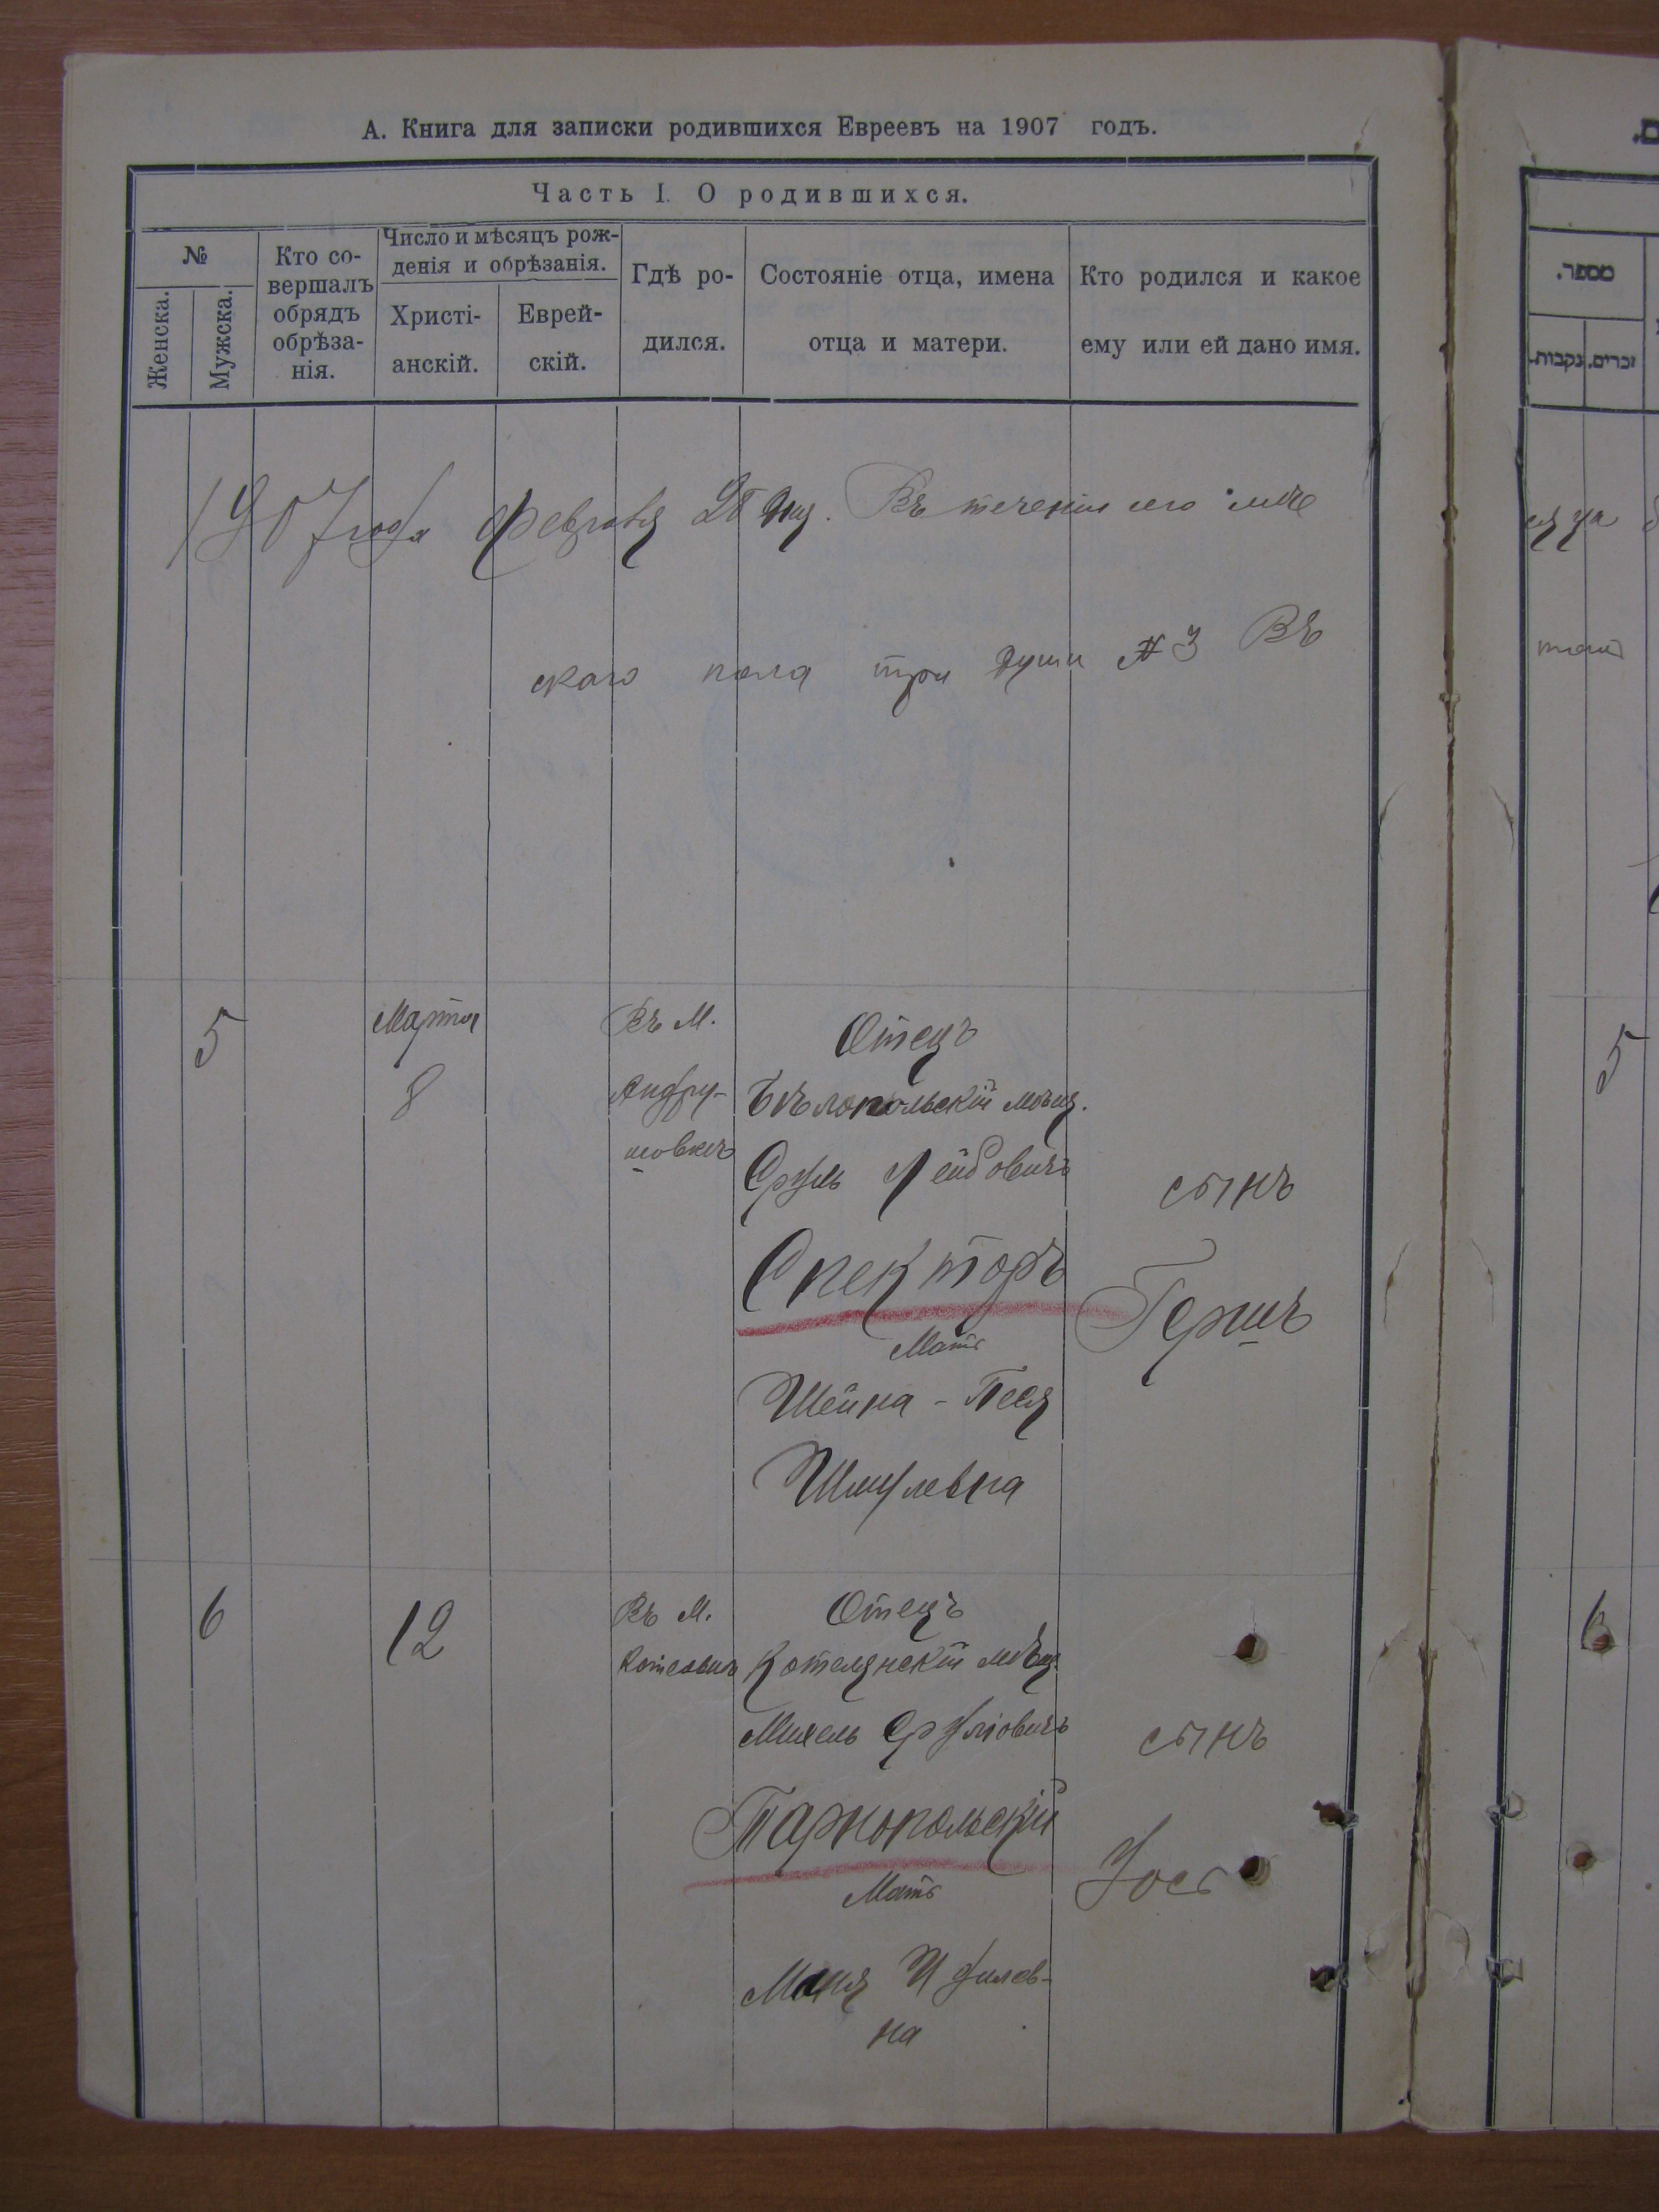 А. Книга для записки родившихся Евреевъ на 1907 годъ.
Часть I. О родившихся.
№
Женска.
Мужска.
Кто со-
вершалъ
обрядъ
обрѣза-
нія.
Число и мѣсяцъ рож-
денія и обрѣзанія.
Христі-
анскій.
Еврей-
скій.
Гдѣ ро-
дился.
Состояніе отца, имена
отца и матери.
Кто родился и какое
ему или ей дано имя.
1907 года Февраля 28 дня. Въ теченіи сего
скаго пола три души № 3 Въ
5
Марта
8
Въ М.
Андру-
шовкѣ
Отецъ
Бѣлопольскій мѣщ.
Сруль Лейбовичъ
Спекторъ
Мать
Шейна - Песя
Шмулевна
сынъ
Гершъ
6
12
Въ М.
Отецъ
Котелянскій мѣщ.
Михель Сруліовичъ
Тарнопольскій
Мать
Маня
на
сынъ
מספר.
נקבות.
זכרים.
5
6